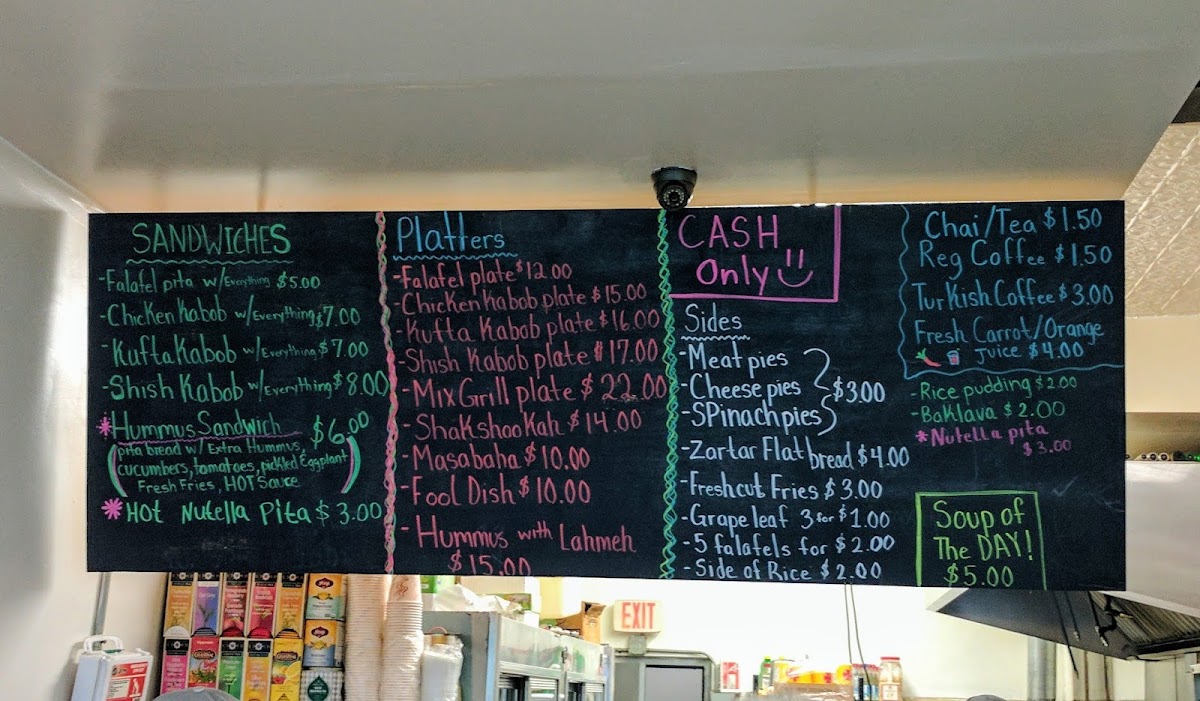 SANDWICHES
-Falafel pita w/Everything $5.00
-Chicken Kabob w/Everything $7.00
-Kufta Kabob w/Everything $7.00
-Shish Kabob w/Everything $8.00
*Hummus Sandwich $6.00
(pita bread w/ Extra Hummus,
cucumbers, tomatoes, pickled Eggplant
Fresh Fries, HOT Sauce)
*Hot Nutella Pita $3.00
Platters
-Falafel plate $12.00
-Chicken Kabob plate $15.00
-Kufta Kabob plate $16.00
-Shish Kabob plate $17.00
-Mix Grill plate $22.00
-Shakshoo Kah $14.00
-Masabaha $10.00
-Fool Dish $10.00
-Hummus with Lahmeh
$15.00
CASH
Only
Sides
-Meat pies
-Cheese pies $3.00
-SPinach pies
-Zartar Flat bread $4.00
-Fresh cut Fries $3.00
-Grape leaf 3 for $1.00
-5 falafels for $2.00
-Side of Rice $2.00
Chai/Tea $1.50
Reg Coffee $1.50
Turkish Coffee $3.00
Fresh Carrot/Orange
Juice $4.00
-Rice pudding $2.00
-Baklava $2.00
*Nutella pita
$3.00
Soup of
The DAY!
$5.00
EXIT